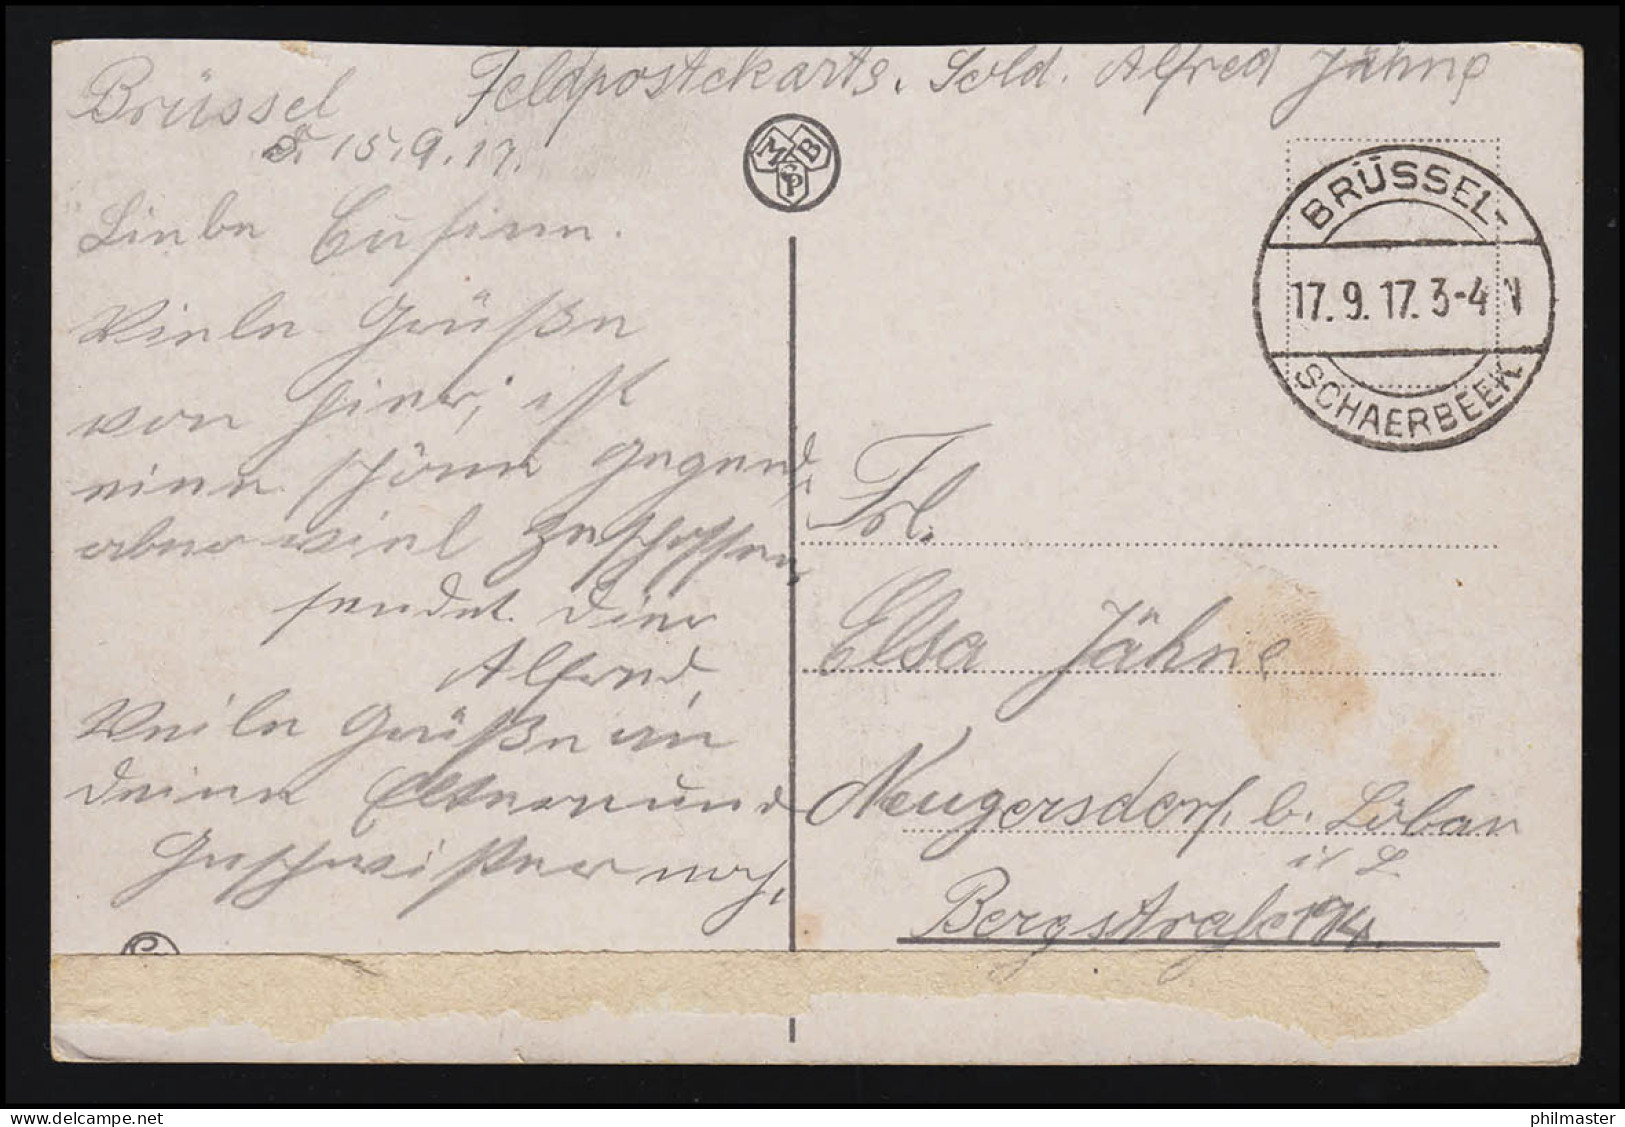 Feldpostekarte. Sold. Alfred Jähne
Brüssel
d. 15.9.17.
Liebe Cusine.
Viele Grüße
von hier, ist
eine schöne Gegend,
aber viel zerschossen,
sendet Dier
Alfred,
Viele Grüße an
deine Eltern und
Geschwister noch.
MBSP
BRÜSSEL-
17.9.17.3-4 N
SCHAERBEEK
Frl.
Elsa Jähne
Neugersdorf. b. Löbau
i/ L.
Bergstraße 194.
philmaster